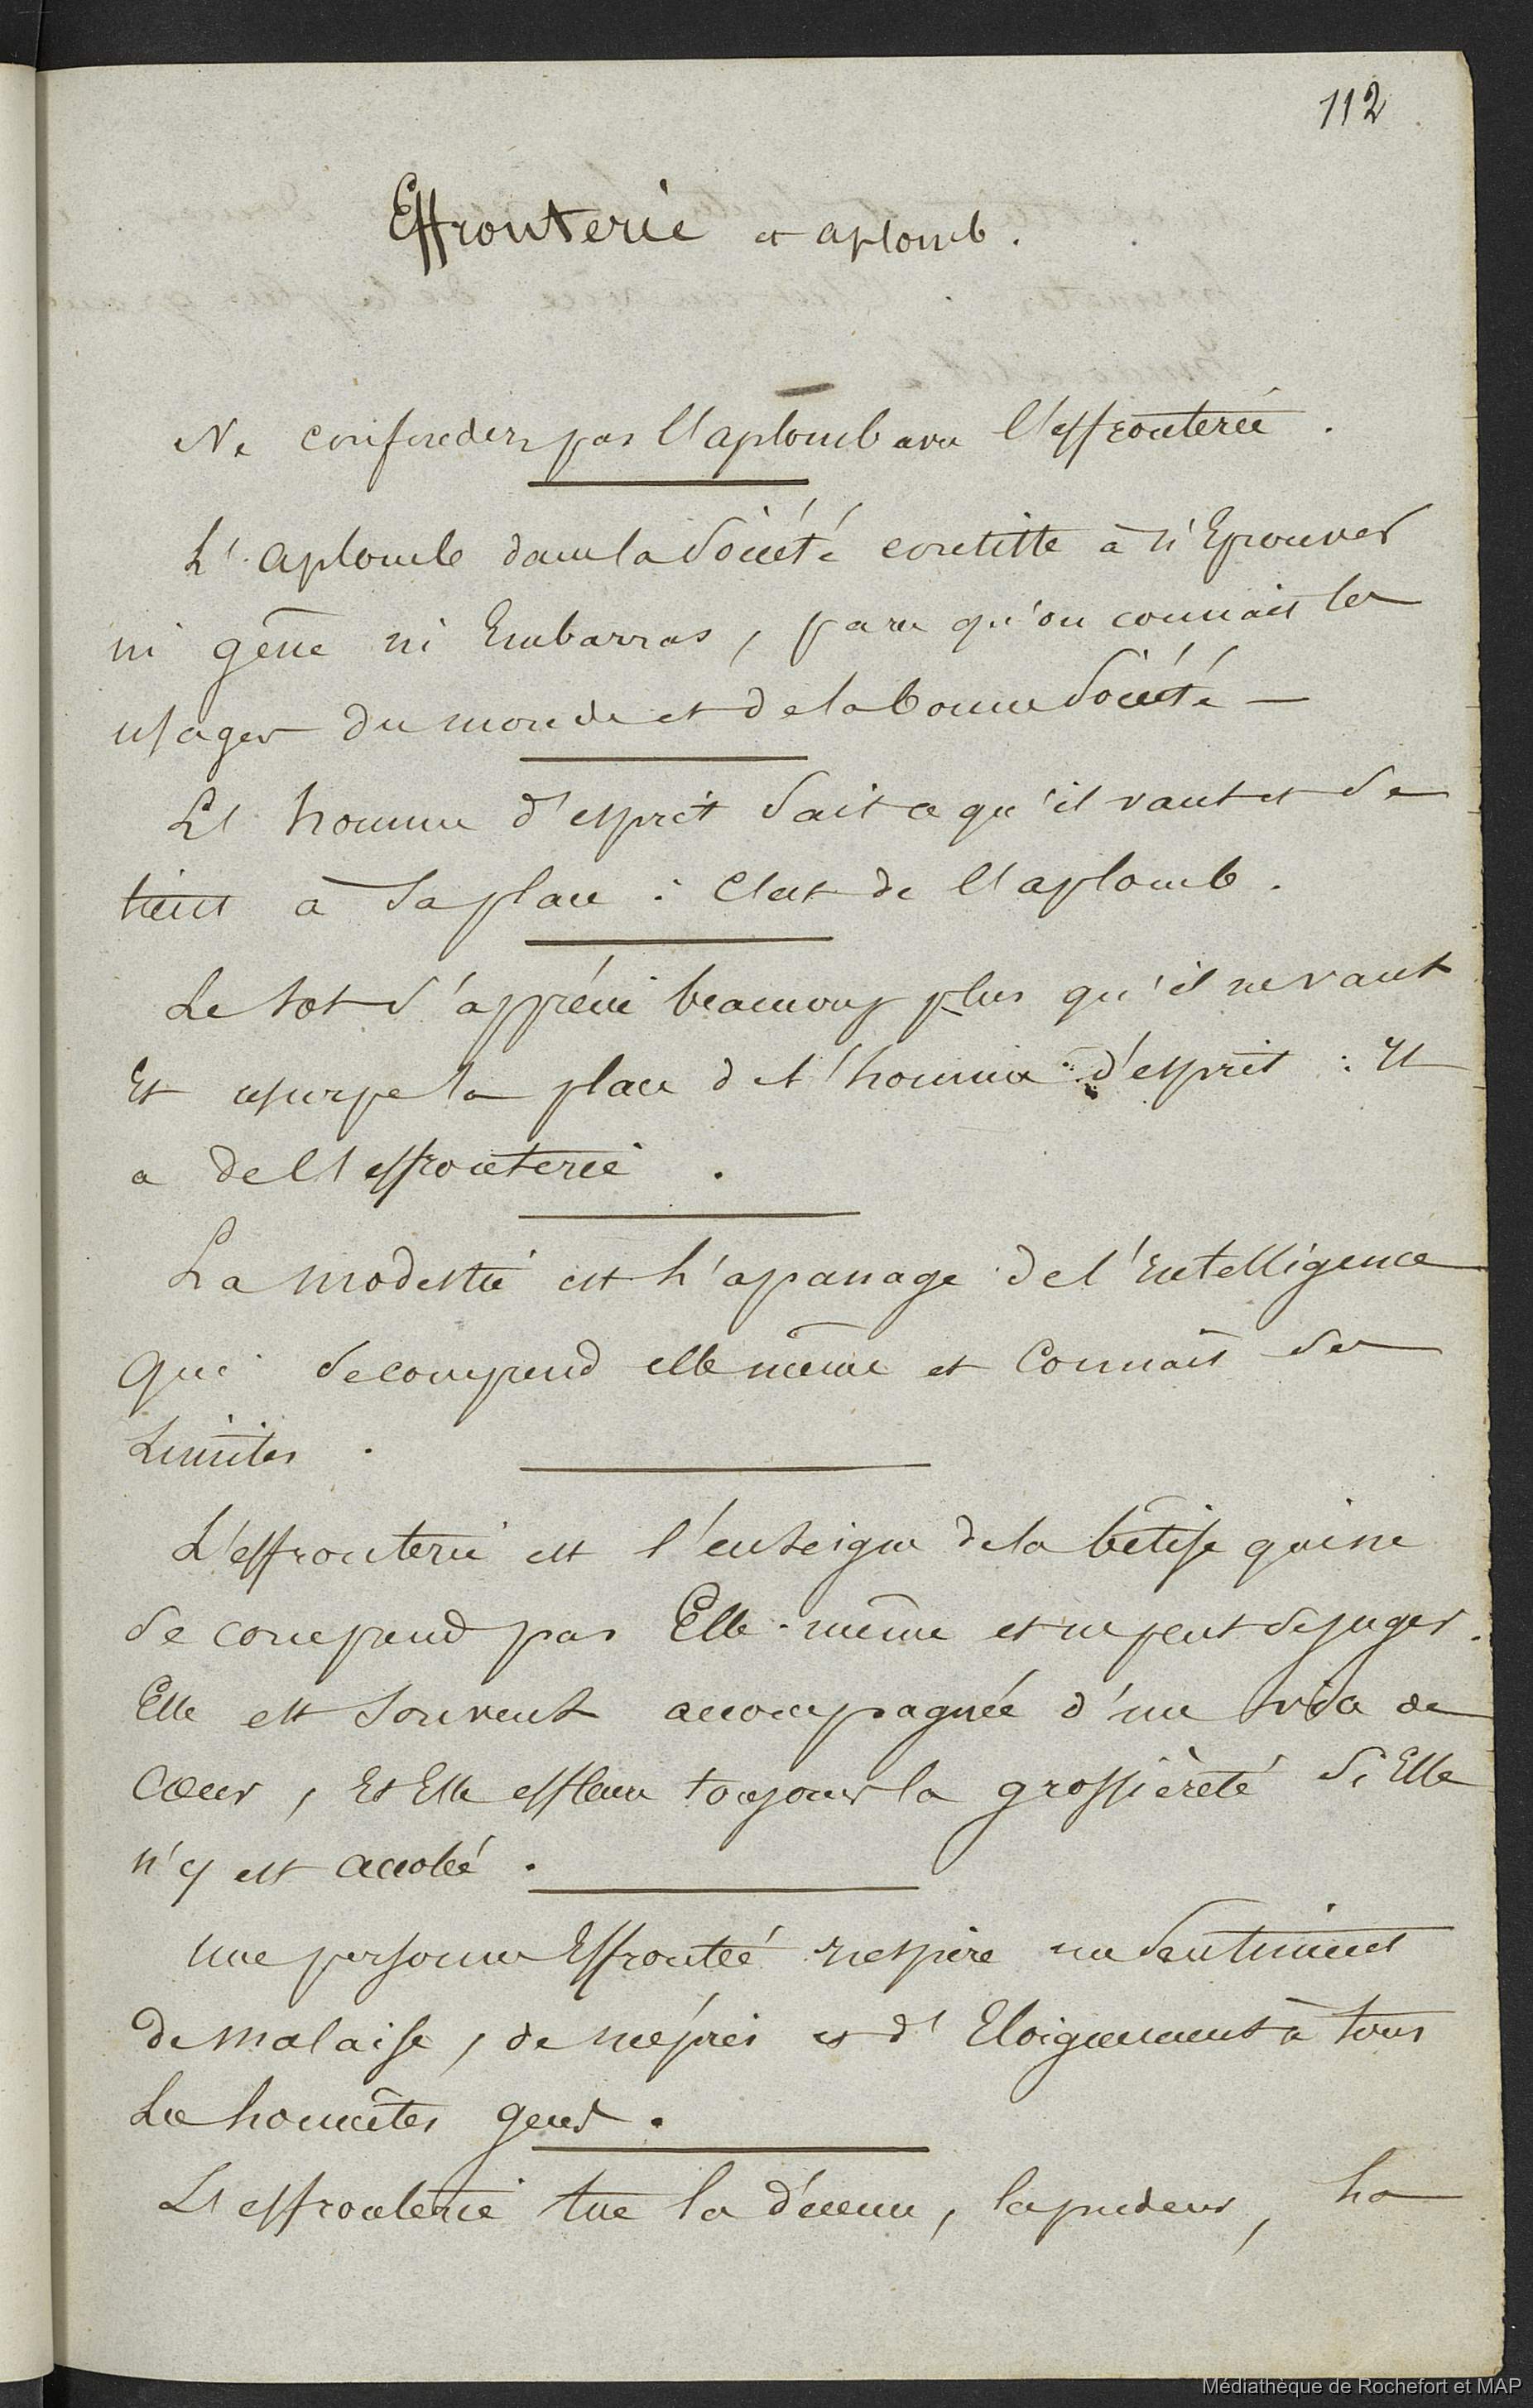 112
Effronterie et aplomb.
Ne confondez pas l'aplomb avec l'effronterie.
L'aplomb dans la Société consiste à n'Eprouver
ni gêne ni Embarras, parce qu'on connait les
usages du monde et de la bonne Société —
L'homme d'esprit sait ce qu'il vaut et se
tient à sa place : C'est de l'aplomb.
Le sot s'apprécie beaucoup plus qu'il ne vaut
Et usurpe la place de l'homme d'esprit : Il
a de l'effronterie.
La modestie est l'apanage de l'Intelligence
qui se comprend elle même et connait ses
Limites.
L'effronterie est l'enseigne de la bêtise qui ne
se comprend pas Elle-même et ne peut se juger.
Elle est souvent accompagnée d'un vide de
Cœur, Et Elle effleure toujours la grossièreté si Elle
n'y est accolée.
Une personne Effrontée inspire un sentiment
de malaise, de mépris et d'Eloignement à tous
Les honnêtes gens.
L'effronterie tue la décence, la pudeur, la
Médiathèque de Rochefort et MAP